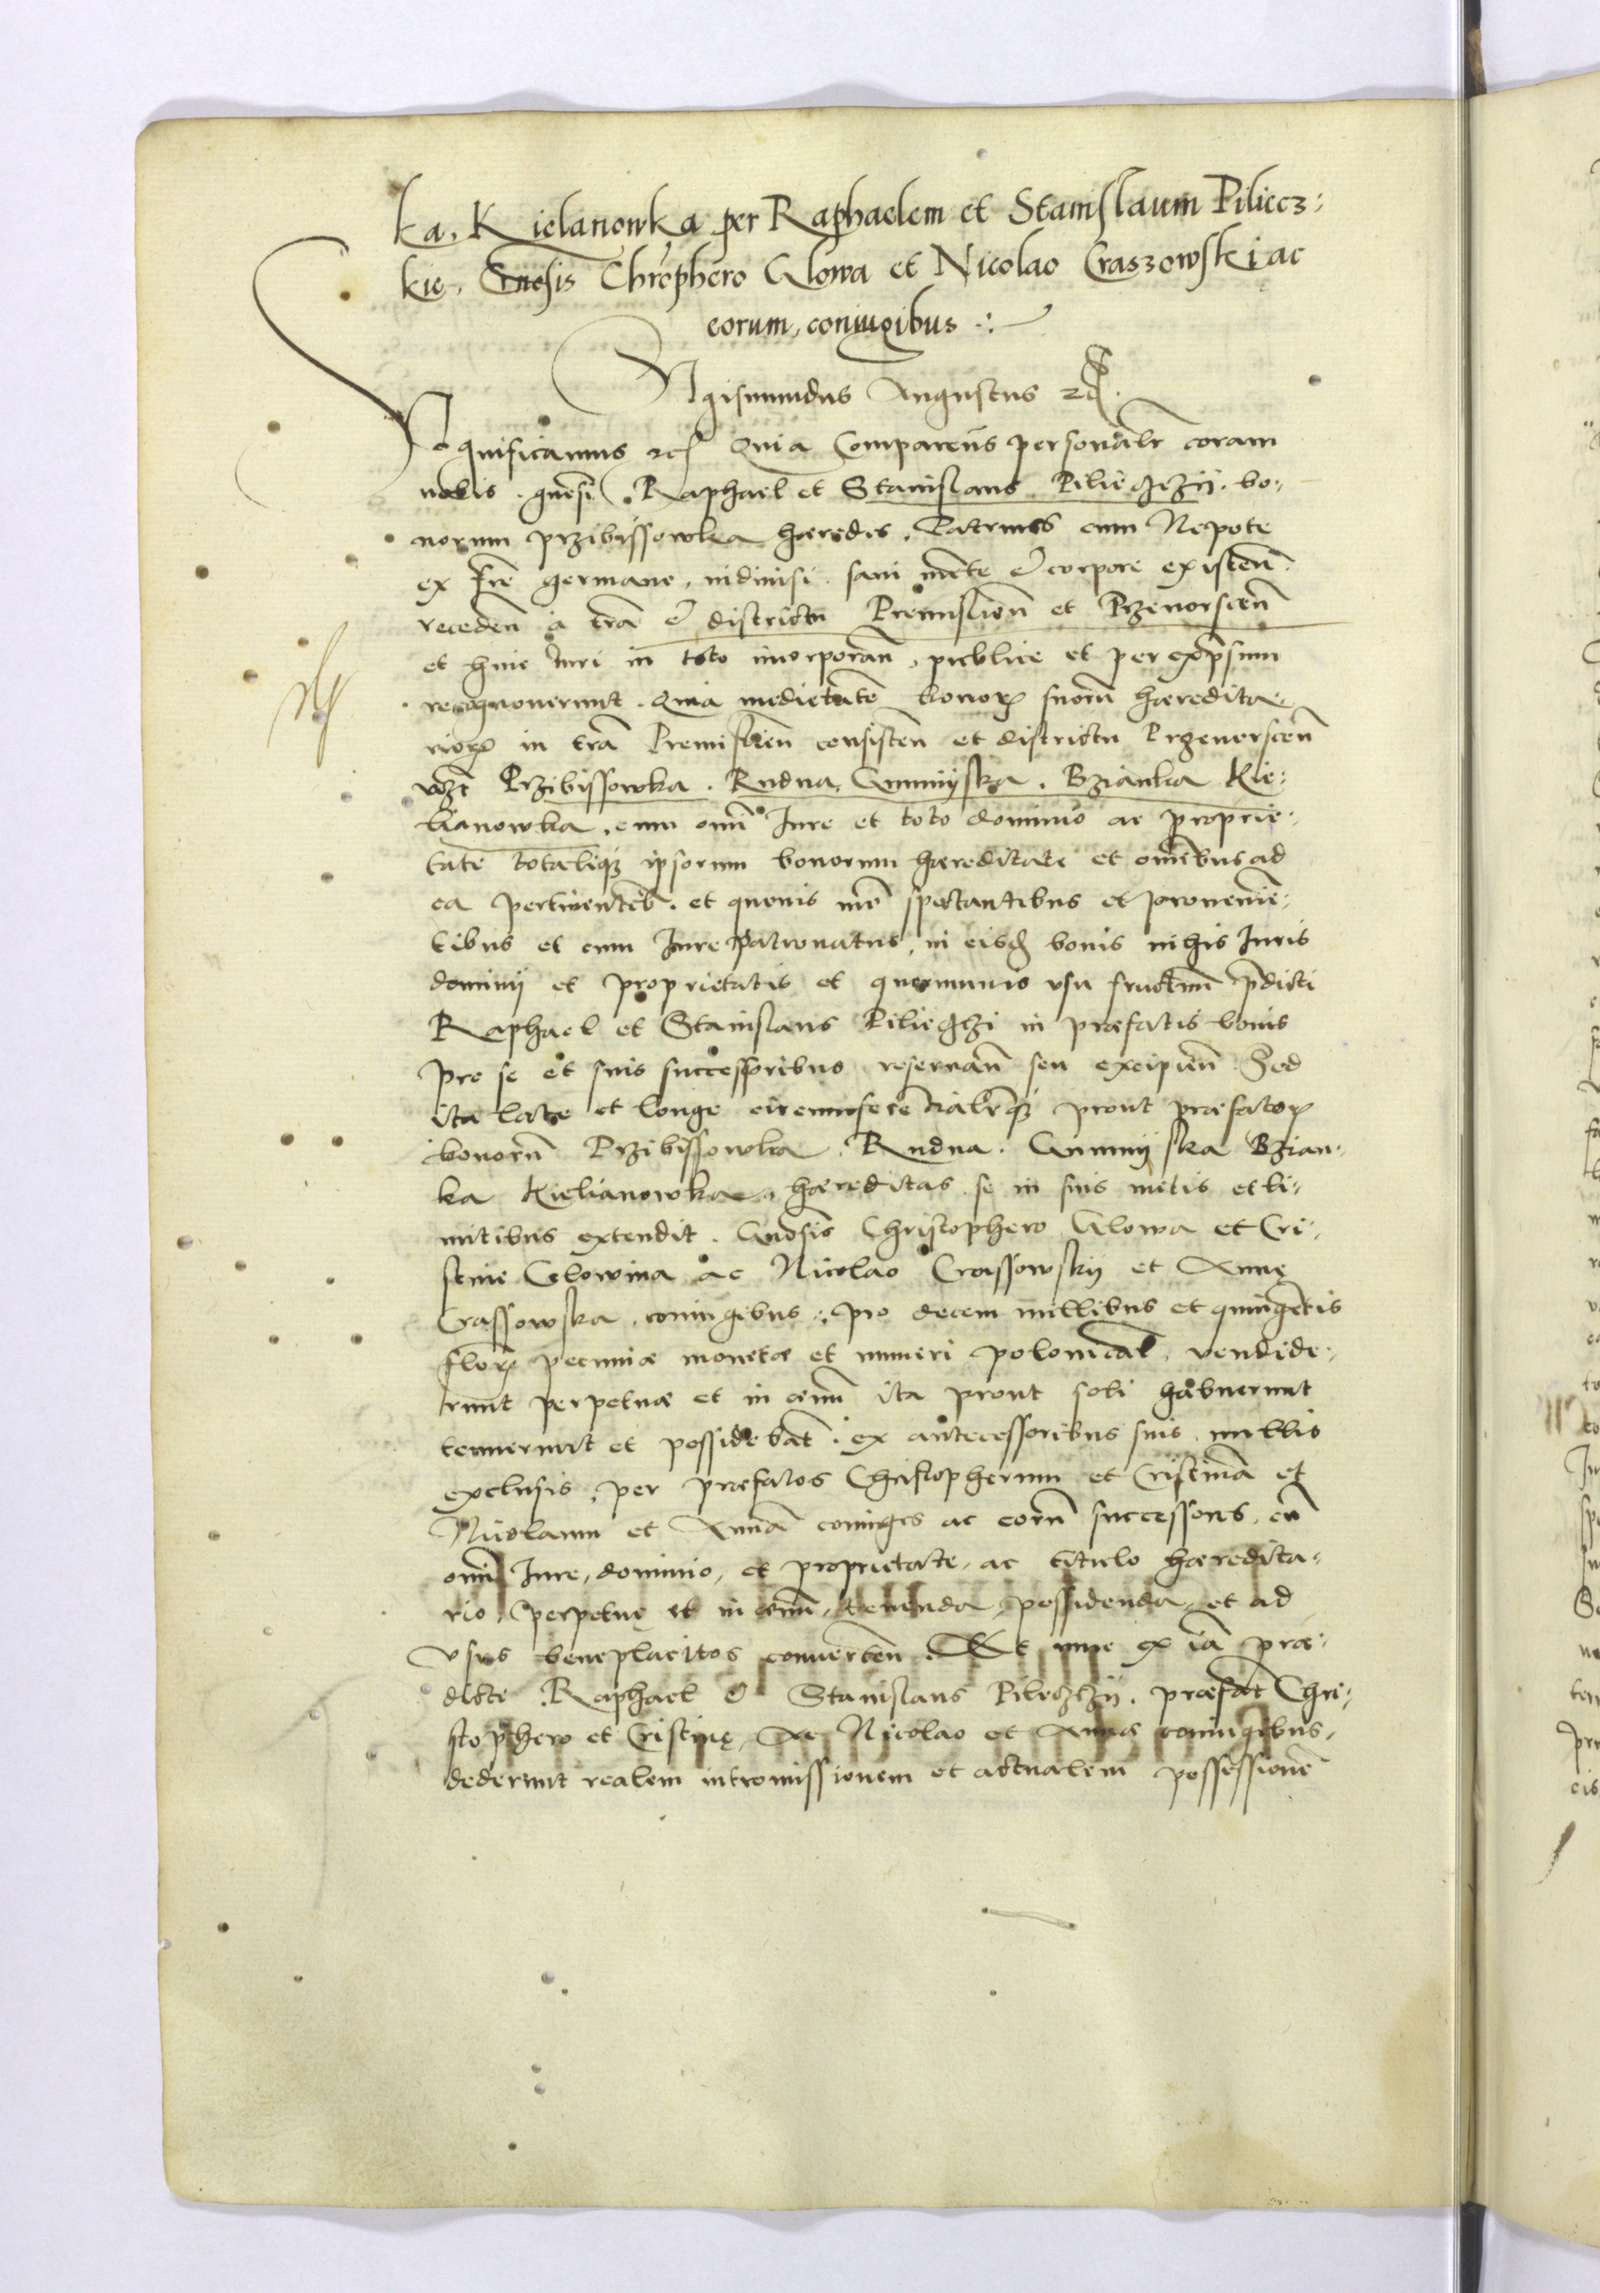 ka. Kielanowka per Raphaelem et Stanislaum Piliecz:
kie. Gnosis Chrophero Glowa et Nicolao Craszowski ac
eorum, coniugibus
Sigismundus Augustus etc.
Significamus etc Quia Comparens personalr coram
nobis. gnosi. Raphael et Stanislaus Pilieczczii. bo-
norum Przibissowka haeredes. Patruus cum Nepote
ex fre germano, indiuisi. sani mente et corpore existen.
receden a tra et districtu Premislien et Przeuorscen
et huic Iuri in toto incorporan, publice et per expssum
recognouerunt. Quia medietatem bonorum suorum haeredita-
riorum in tra Premislien consisten et districtu Przeuorscen
vzt Przibissowka. Rudna, Gumnijska. Bzianka Kie:
lianowka, cum omi Iure et toto dominio ac proprie-
tate totalique ipsorum bonorum haereditate et omibus ad
ea pertinentib. et quouis mo spectantibus et prouenien-
tibus et cum Iure patronatus, in eisd bonis nihis Iuris
dominij et proprietatis et quorumuis vsu fructuum pdicti
Raphael et Stanislaus Pilieczczi in praefatis bonis
pro se et suis successoribus reseruan seu excipien Sed
ita late et longe circumferentialrque prout praefatorum
bonorum Przibissowka. Rudna. Gumnijska Bzian-
ka Kielianowka, haereditas se in suis metis et li-
mitibus extendit. Gnosis Christophero Glowa et Cri-
stine Glowina ac Nicolao Crassowskij et Annę
Crassowska, coniugibus, pro decem millibus et quingetis
florum pecuniae monetae et numeri polonical, vendide-
runt perpetuae et in aeuum ita prout soli habuerunt
tenuerunt et possidebat. ex antecessoribus suis, nullis
exclusis, per praefatos Christopherum et Cristina et
Nicolaum et Anna coniuges ac eorum successores, cu
omi Iure, dominio, et proprietate, ac titulo haeredita-
rio, perpetuę et in aeuum, tenenda, possidenda, et ad
vsus beneplacitos conuerten. Et nunc ex ia prae-
dicte Raphael et Stanislaus Pileczczij, praefat Chri-
stophero et Cristinę, Ac Nicolao et Annae coniugibus,
dederunt realem intromissionem et actualem possessione